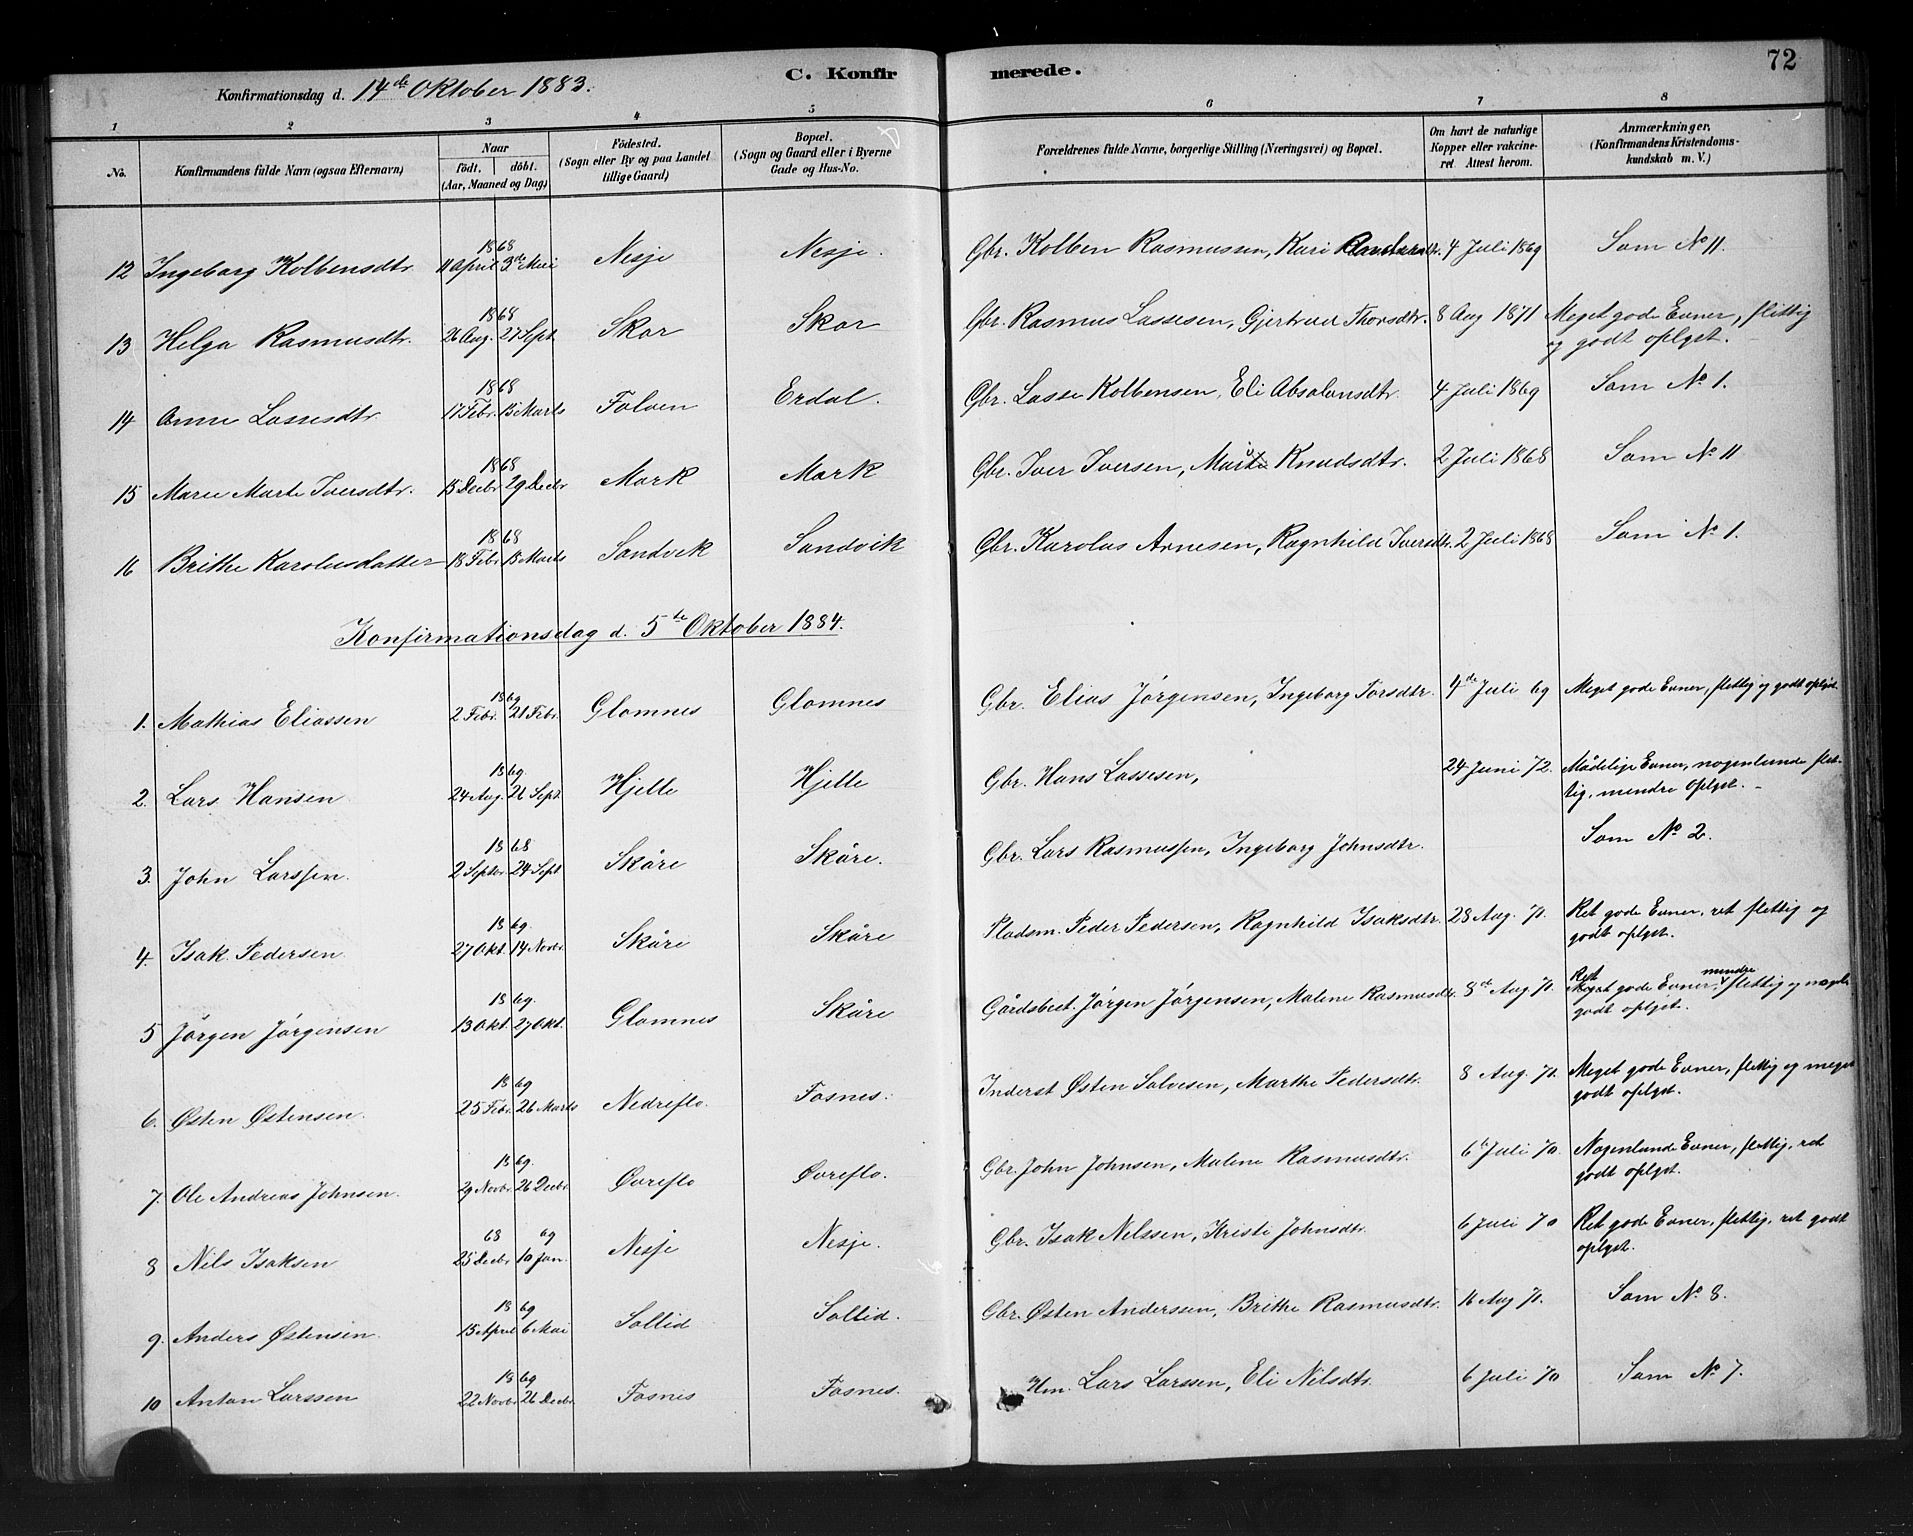 72
C. Konfirmerede.
Konfirmationsdag d. 14de Oktober 1883.
1 2 3 4 5 6 7 8
No. Konfirmandens fulde Navn (ogsaa Efternavn) Naar födt. döbt. (Aar, Maaned og Dag) Födested. (Sogn eller By og paa Landet tillige Gaard) Bopæl. (Sogn og Gaard eller i Byerne Gade og Hus-No. Forældrenes fulde Navne, borgerlige Stilling (Næringsvei) og Bopæl. Om havt de naturlige Kopper eller vakcineret Attest herom. Anmærkninger. (Konfirmandens Kristendomskundskab m. V.)
1868
12 Ingeborg Kolbensdtr. 11 April 3de Mai Nesje Nesje. Gbr. Kolben Rasmussen, Kari 4 Juli 1869 Som No 11.
1868
13 Helga Rasmusdtr. 26 Aug. 27 Sept. Skor Skor Gbr. Rasmus Lassesen, Gjertrud Thorsdtr. 8 Aug 1871 Meget gode Evner, flittig
og godt oplyst.
1868
14 Anne Lassesdtr. 17 Febr. 15 Marts Folven Erdal. Gbr. Lasse Kolbensen, Eli Absalonsdtr. 4 Juli 1869 Som No 1.
1868
15 Marie Marte Iversdtr. 15 Decbr 29 Decbr Mork Mork Gbr. Iver Iversen, Knudsdtr. 2 Juli 1868 Som No 11
1868
16 Brithe Karolusdatter 18 Febr. 18 Marts Sandvik Sandvik Gbr. Karolus Arnesen, Ragnhild Iversdtr. 2 Juli 1868 Som No 1.
Konfirmationsdag d. 5te Oktober 1884.
1869
1. Mathias Eliassen 2 Febr. 21 Febr. Glomnes Glomnes Gbr. Elias Jørgensen, Ingeborg Torsdtr. 4de Juli 69 Meget gode Evner, flittig og godt oplyst.
1869
2. Lars Hansen 24 Aug. 26 Sept. Hjelle Hjelle Gbr. Hans Lassesen, 24 Juni 72. Mådelige Evner, nogenlunde flit-
tig, mindre oplyst.
1868
3. John Larssen. 2 Septbr. 24 Sept Skåre Skåre. Gbr. Lars Rasmussen, Ingeborg Johnsdtr. Som No 2.
1869.
4. Isak Pedersen. 27 Okt. 14 Novbr. Skåre Skåre Pladsm. Peder Pedersen, Ragnhild Isaksdtr. 28 Aug. 71. Ret gode Evner, ret flittig og
godt oplyst.
1869.
5 Jørgen Jørgensen 13 Okt. 27 Okt. Glomnes Skåre Gårdsbest. Jørgen Jørgensen, Malene Rasmusdtr. 8de Aug 71. Ret Meget gode Evner, mindre flittig og
godt oplyst.
1869
6. Østen Østensen. 25 Febr. 26 Marts Nedreflo. Fosnes. Inderst Østen Salvesen, Marthe Pedersdtr. 8 Aug. 71. Meget gode Evner, flittig og meget
godt oplyst.
1869.
7. Ole Andreas Johnsen. 29 Novbr. 26 Decbr. Øvreflo Øvreflo. Gbr. John Johnsen, Malene Rasmusdtr. 6te Juli 70. Nogenlunde Evner, flittig, ret
godt oplyst.
68 69
8 Nils Isaksen 25 Decbr. 10 Jan. Nesje Nesje. Gbr. Isak Nilssen, Kristi Johnsdtr. 6 Juli 70 Ret gode Evner, flittig, ret godt
oplyst.
1869
9. Anders Østensen. 15 April 6 Mai Sollid Sollid. Gbr. Østen Anderssen, Brithe Rasmusdtr. 16 Aug 71. Som No 8.
1869
10 Anton Larssen 22 Novbr. 26 Decbr. Fosnes Fosnes. Hm. Lars Larssen, Eli Nilsdtr. 6 Juli 70 Som No 7.